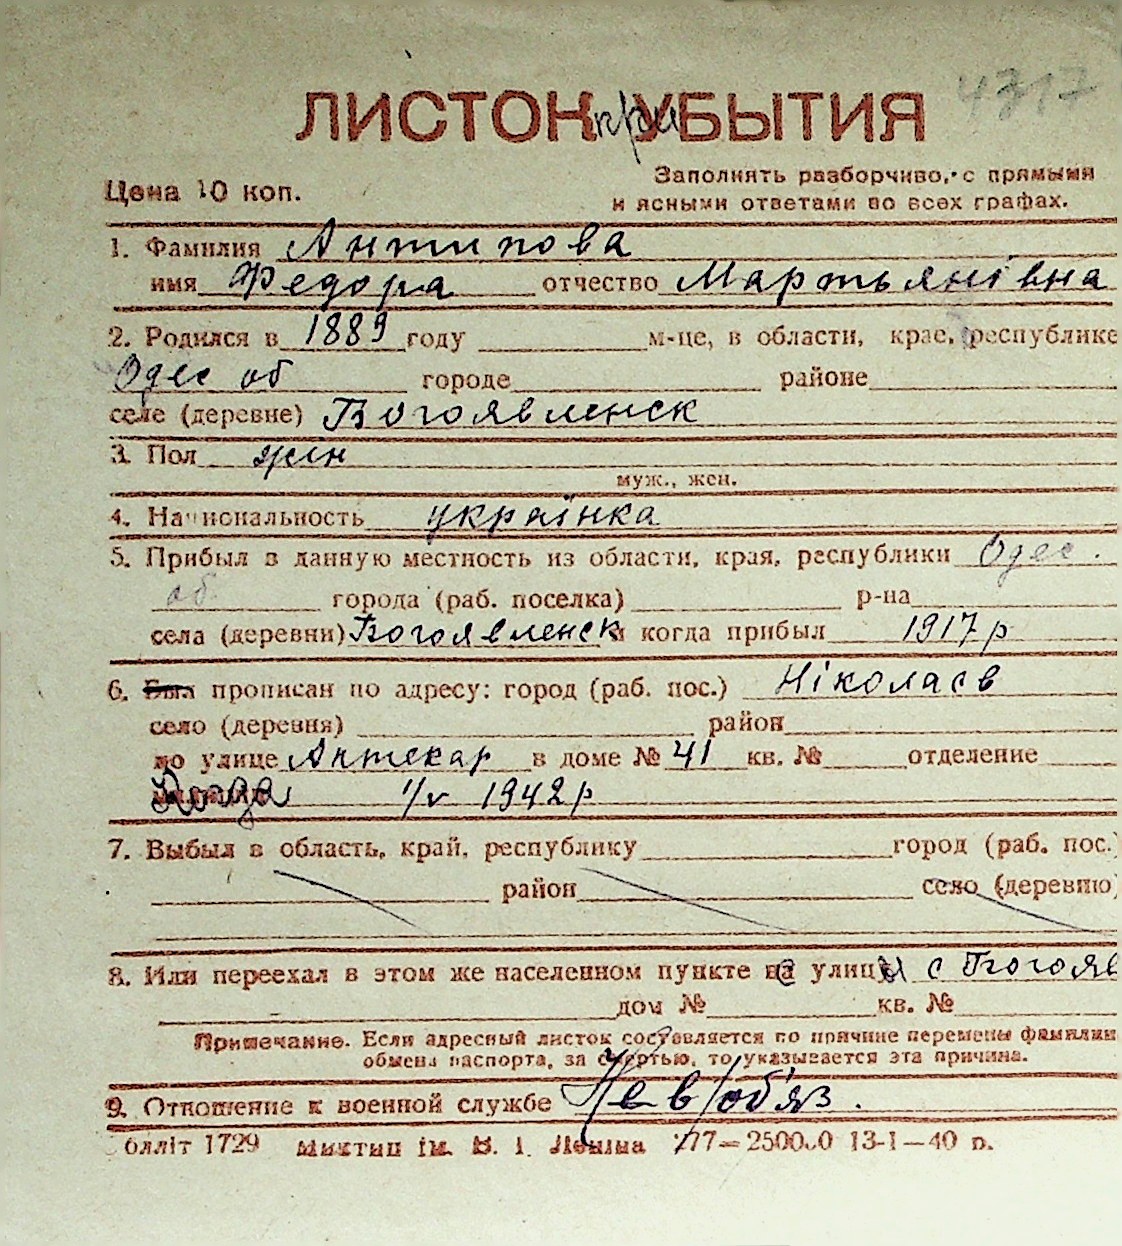 4317
ЛИСТОК при УБЫТИЯ
Цена 10 коп.
Заполнять разборчиво, с прямыми
и ясными ответами во всех графах.
1. Фамилия Антипова
имя Федора отчество Мартьянівна
2. Родился в 1889 году м-це, в области, крае, республике
Одес об городе районе
селе (деревне) Богоявленск
3. Пол жін
муж., жен.
4. Национальность українка
5. Прибыл в данную местность из области, края, республики Одес.
об. города (раб. поселка) р-на
села (деревни) Богоявленск и когда прибыл 1917 р
6. Был прописан по адресу: город (раб. пос.) Ніколаєв
село (деревня) район
по улице Аптекар в доме № 41 кв. № отделение
Когда 1/v 1942 р
7. Выбыл в область, край, республику город (раб. пос.)
район село (деревню)
8. Или переехал в этом же населенном пункте с улицы с Богояв
дом № кв. №
Примечание. Если адресный листок составляется по причине перемены фамилии
обмена паспорта, за смертью, то указывается эта причина.
9. Отношение к военной службе Не в/об'яз.
Облліт 1729 Миктип ім. В. І. Леніна 777—250000 13-1—40 р.